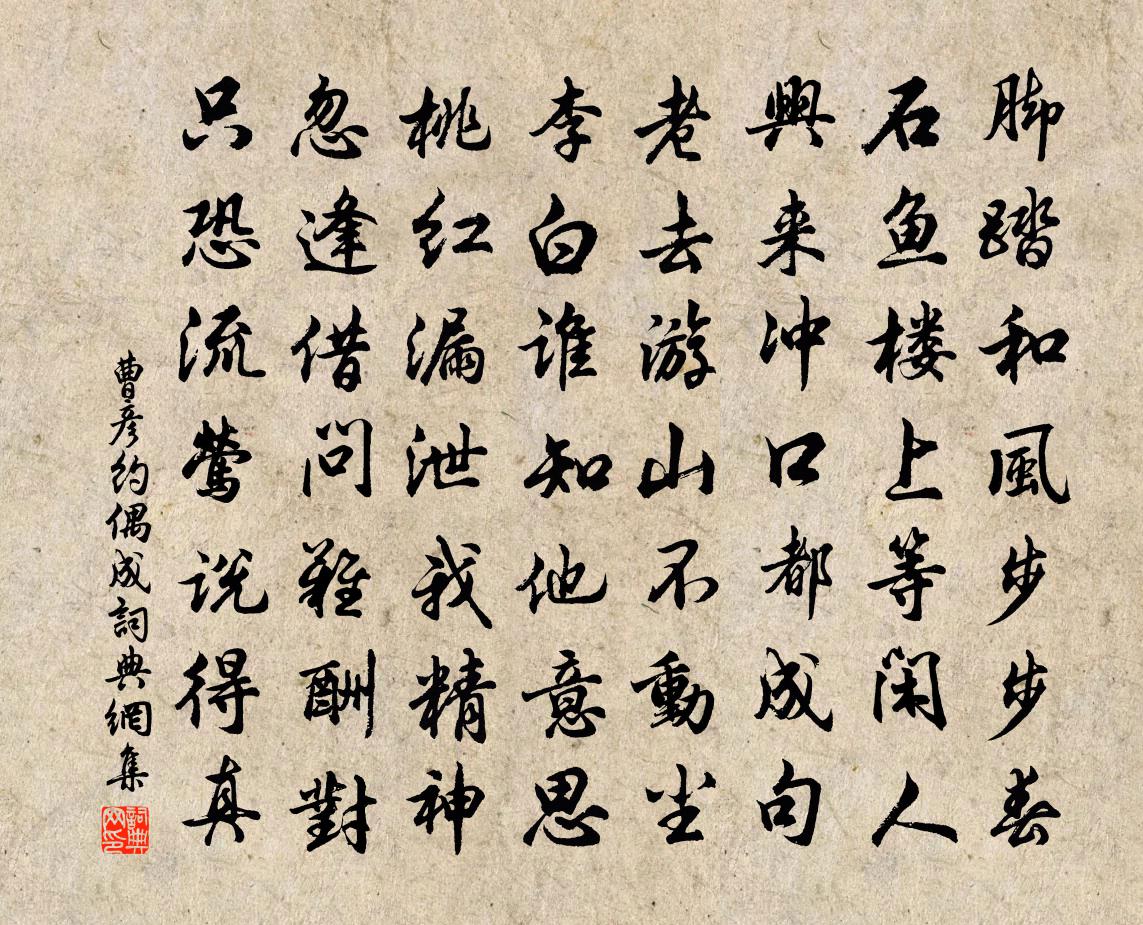 脚踏和風步步春
石鱼楼上等闲人
興来冲口都成句
老去游山不動尘
李白谁知他意思
桃红漏泄我精神
忽逢借问難酬對
只恐流莺说得真
曹彦约偶成詞典網集
詞典网印